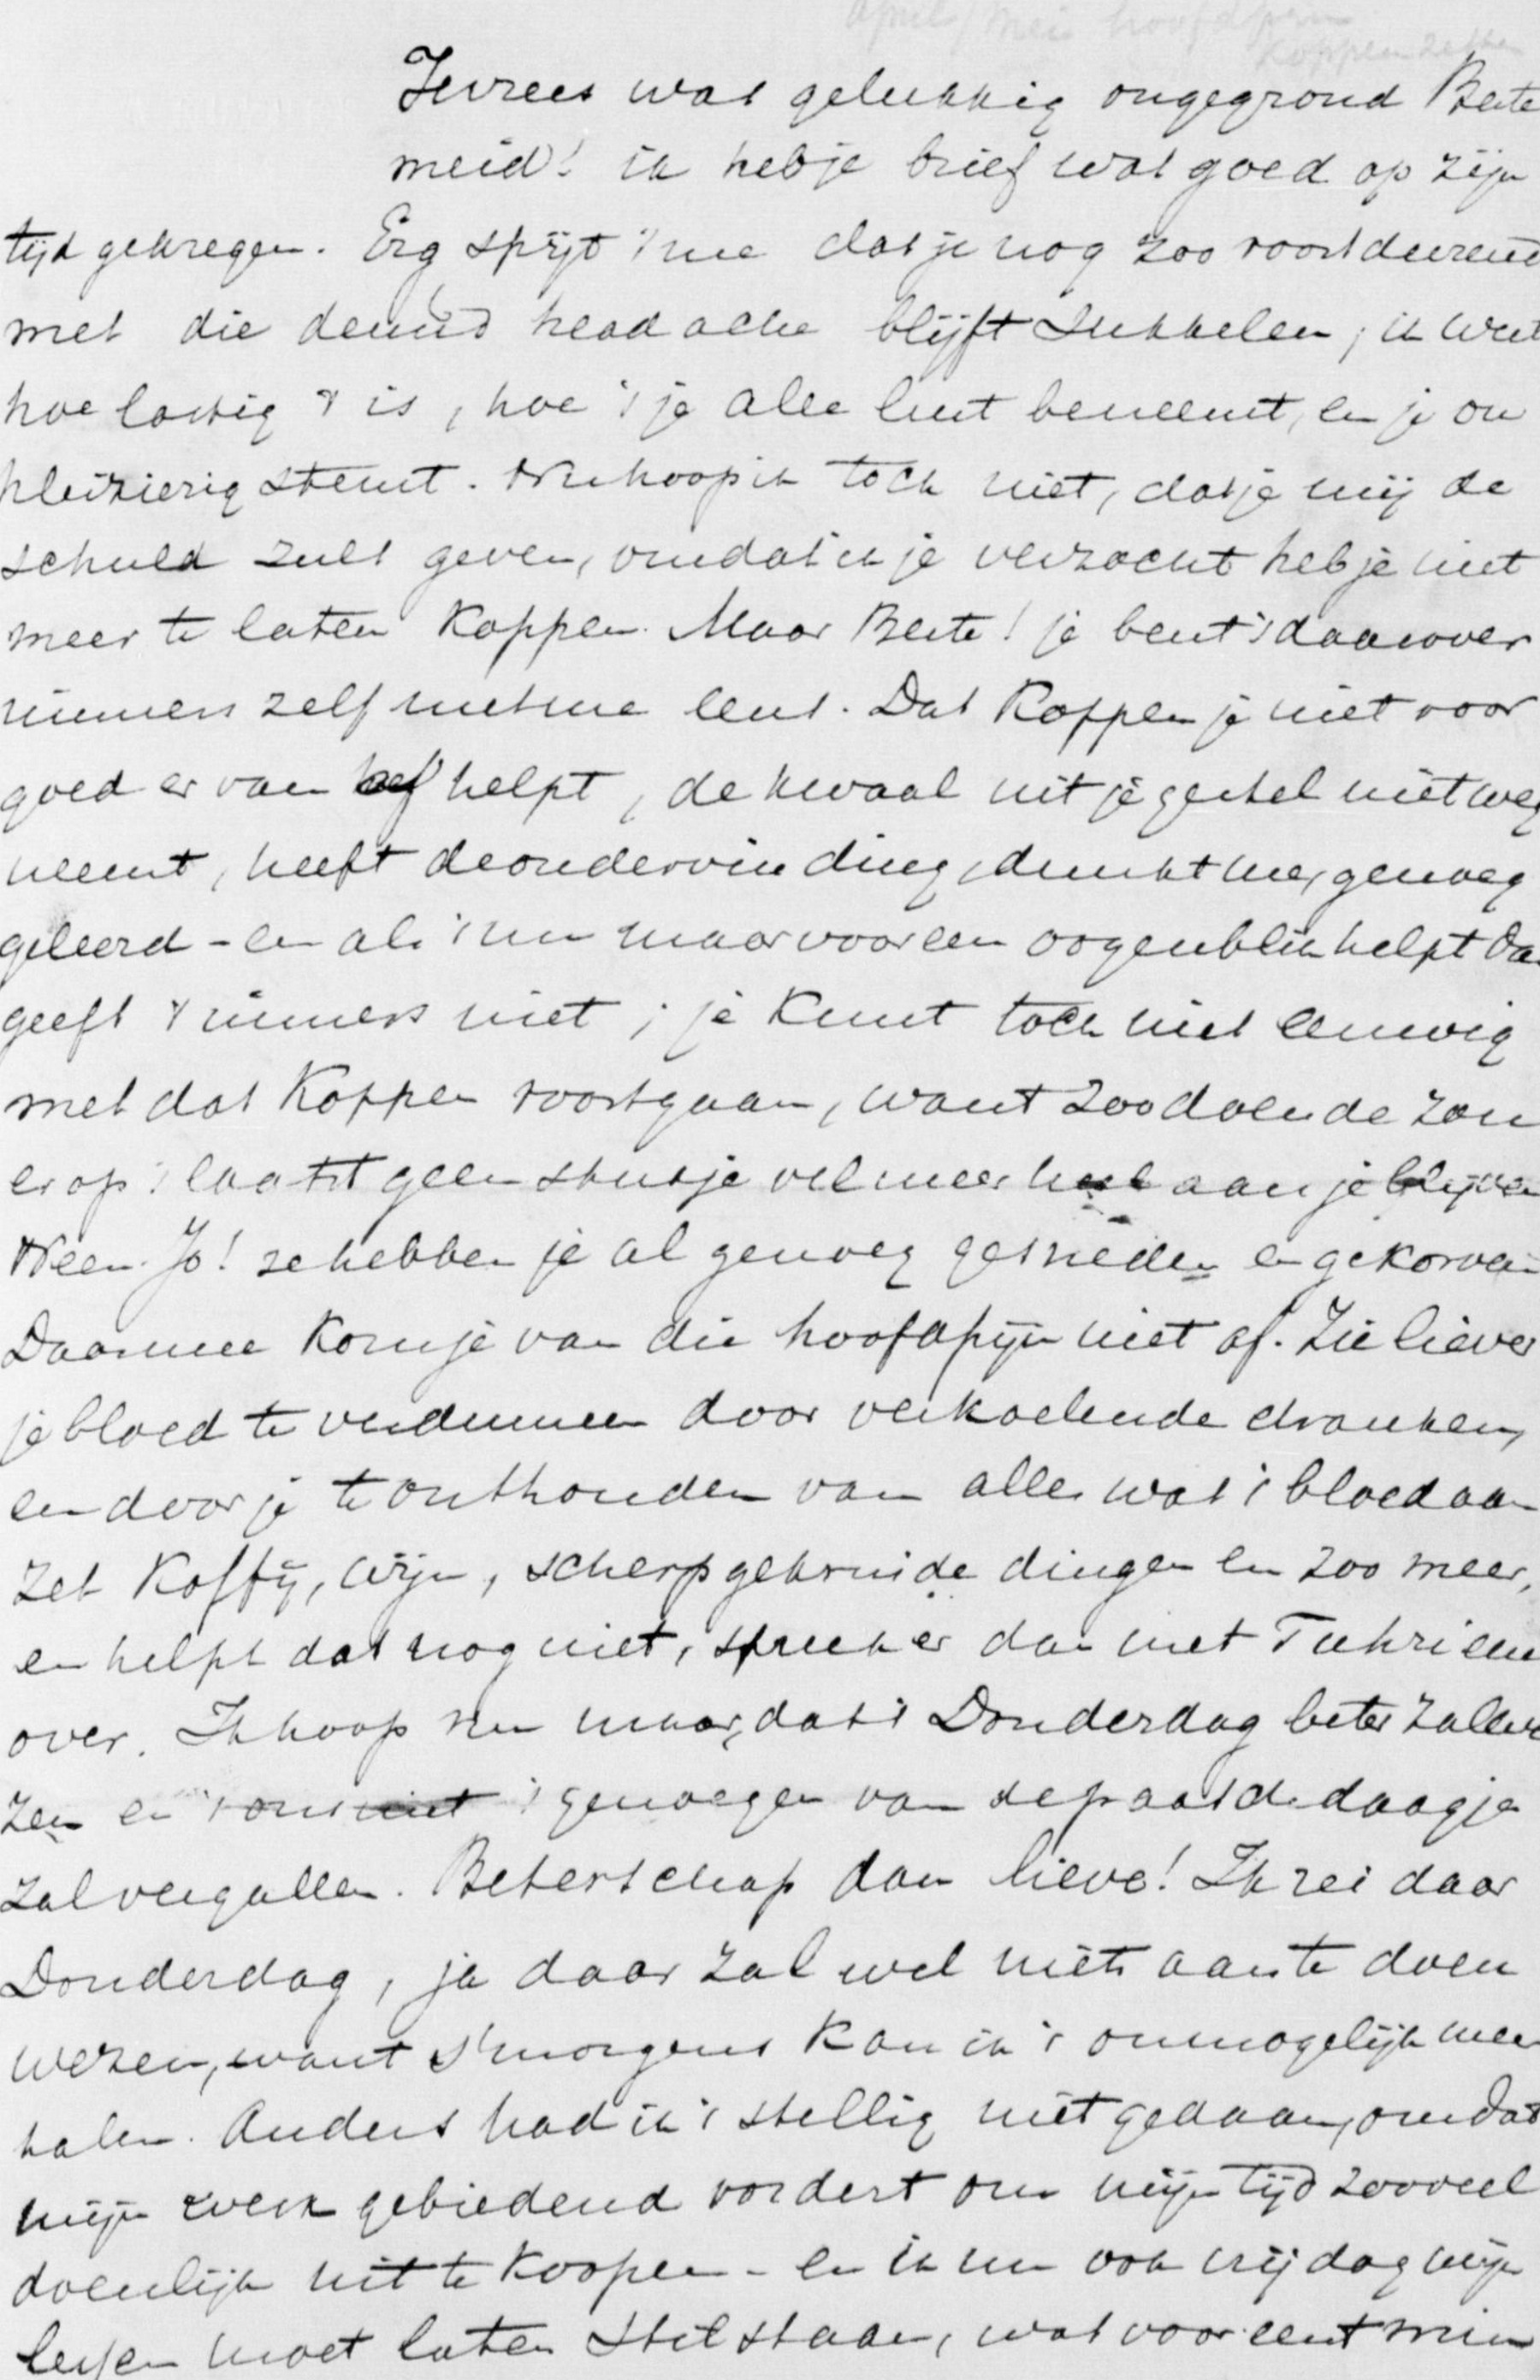 april / mei hoofdpijn
koppen zetten
Je vrees was gelukkig ongegrond Beste
meid! ik heb je brief wat goed op zijn
tijd gekregen. Erg spijt 't me dat je nog zoo voortdurend
met die head ache blijft sukkelen; ik weet
hoe lastig 't is, hoe 't je alle lust beneemt, en je on
pleizierig stemt. Nu hoop ik toch niet, dat je mij de
schuld zult geven, omdat ik je verzocht heb je niet
meer te laten Koppen. Maar Beste! je bent 't daarover
immers zelf met me eens. Dat Koppen je niet voor
goed er van af helpt, de kwaal uit je gestel niet weg
neemt, heeft de ondervinding, dunkt me, genoeg
geleerd - en als 't nu maar voor een oogenblik helpt dan
geeft 't immers niet; je kunt toch niet eeuwig
met dat Koppen voortgaan, want zoodoende zou
er op 't laatst geen stukje vel meer heel aan je blijven
Neen Jo! ze hebben je al genoeg gesneden en gekorven
Daarmee kom je van die hoofdpijn niet af. Zie liever
je bloed te verdunnen door verkoelende dranken,
en door je te onthouden van alles wat 't bloed aan
zet Koffij, wijn, scherp gekruide dingen en zoo meer,
en helpt dat nog niet, spreek er dan met
over. Ik hoop nu maar, dat 't Donderdag beter zal we
zen en 't ons niet 't genoegen van de daagje
zal vergallen. Beterschap dan lieve! Ik zei daar
Donderdag, ja daar zal wel niets aan te doen
wezen, want s'morgens kan ik 't onmogelijk meer
halen. Anders had ik 't stellig niet gedaan, omdat
mijn werk gebiedend vordert om mijn tijd zooveel
doenlijk uit te koopen - en ik nu ook vrijdag mijn
lessen moet laten stilstaan, wat voor eerst mijn